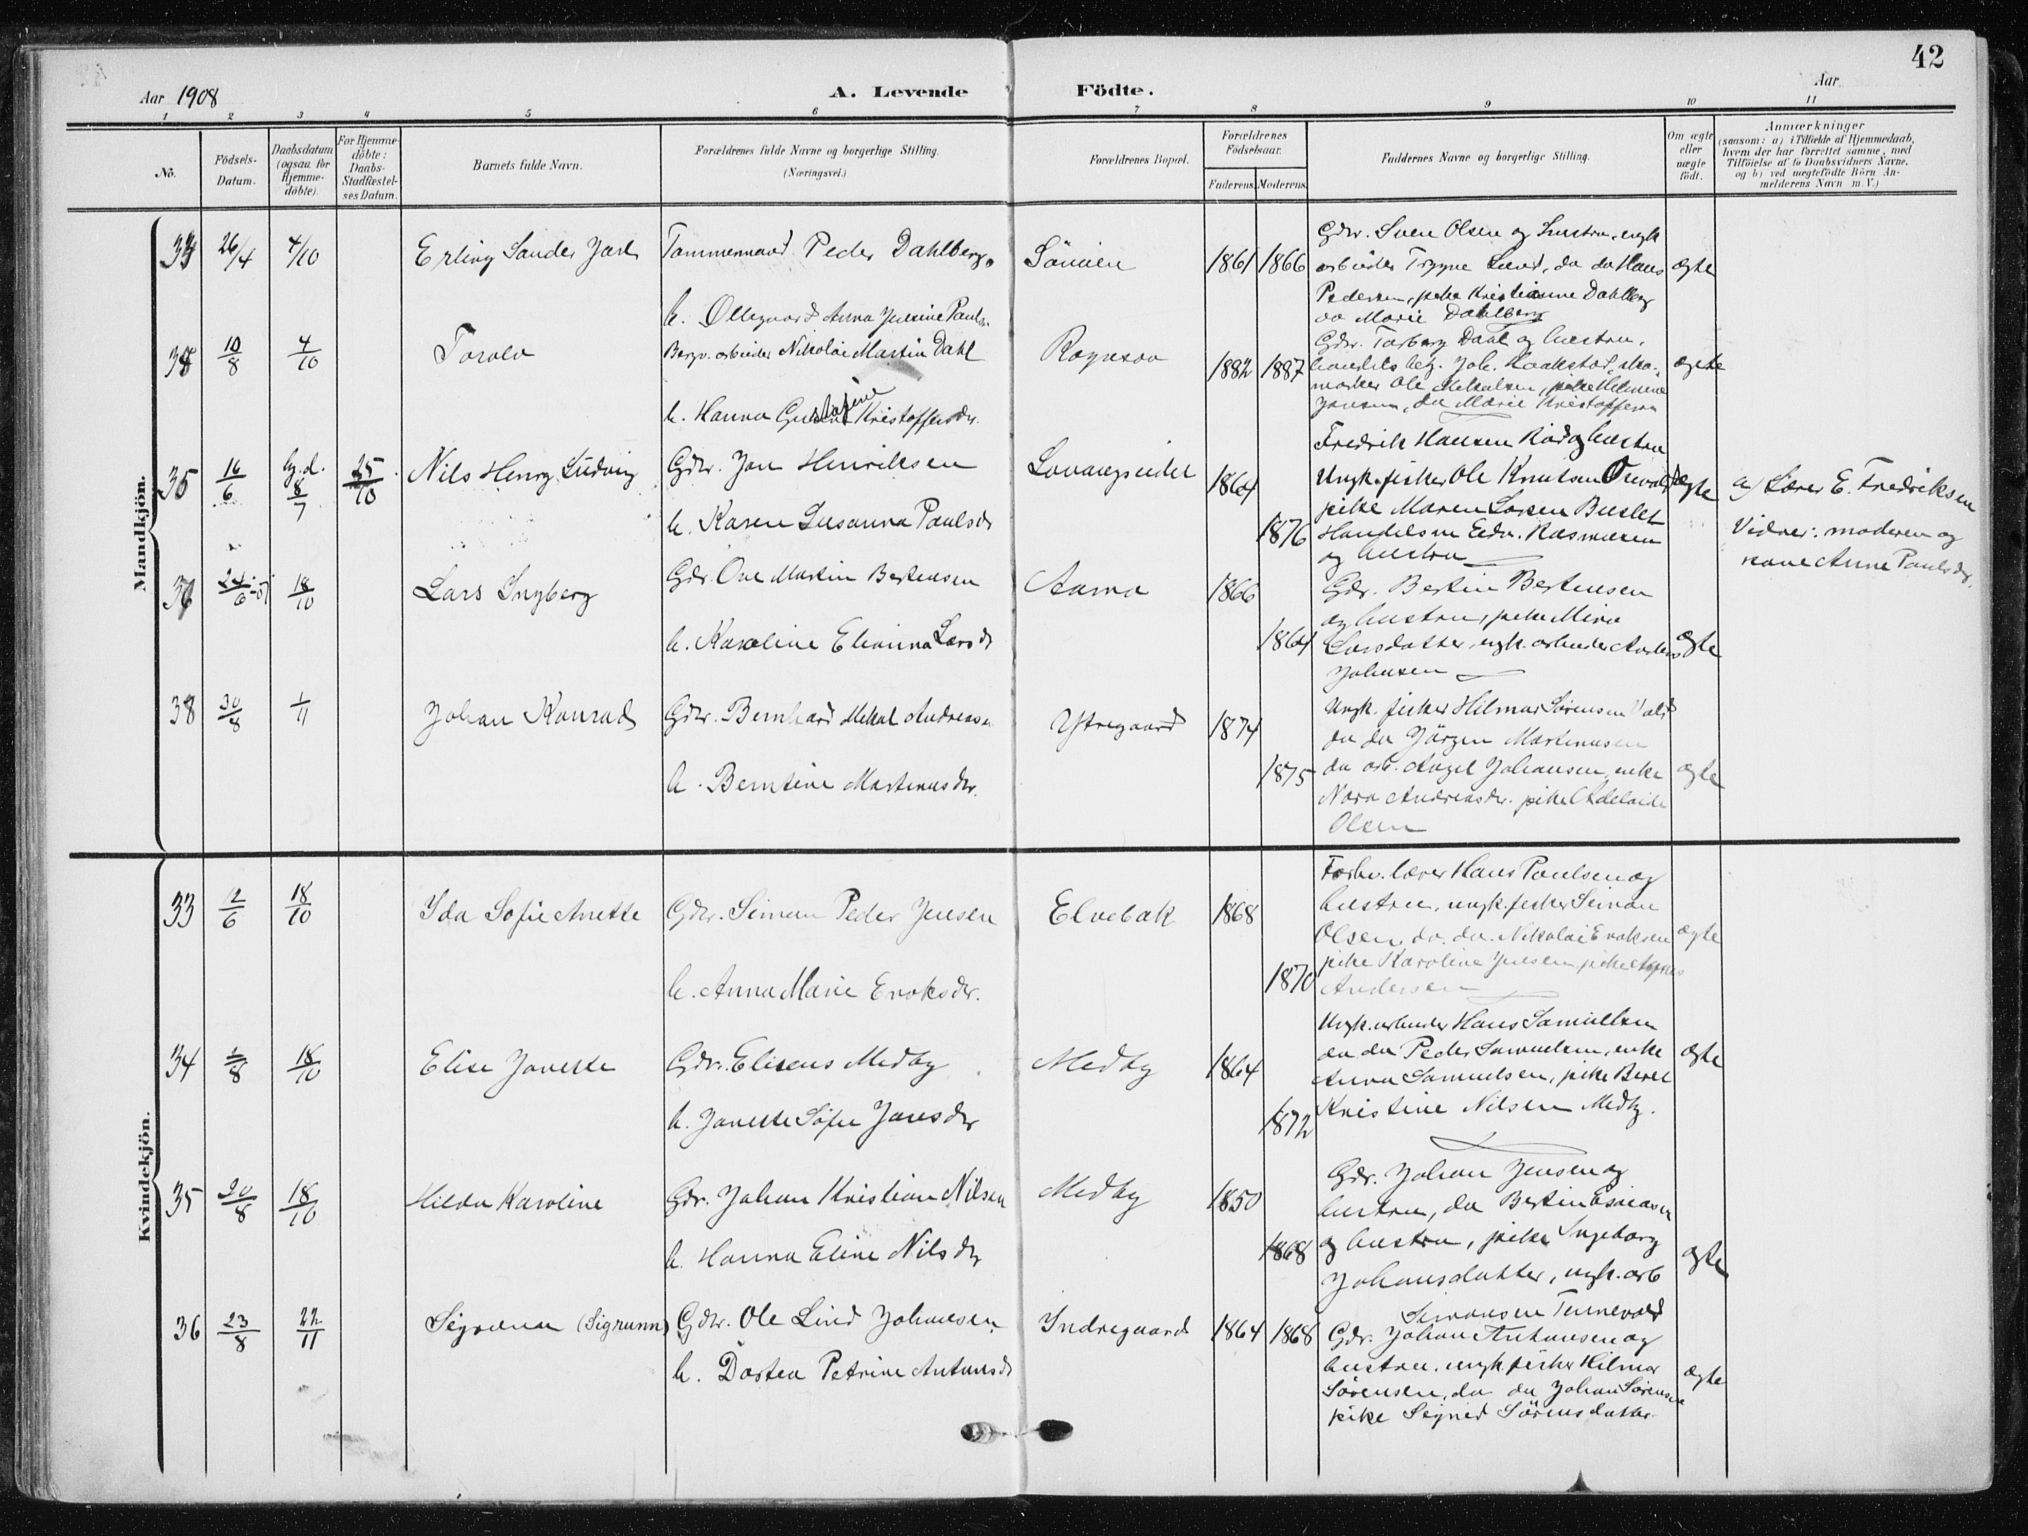 42
Aar 1908
A. Levende Födte.
Aar
1 2 3 4 5 6 7 8 9 10 11
No.
Födsels-
Datum.
Daabsdatum
(ogsaa for
Hjemme-
döbte).
For Hjemme-
döbte:
Daabs-
Stadfæstel-
ses Datum.
Barnets fulde Navn.
Forældrenes fulde Navne og borgerlige Stilling.
(Næringsvei.)
Forældrenes Bopæl.
Forældrenes
Födselsaar.
Faderens. Moderens.
Faddernes Navne og borgerlige Stilling.
Om ægte
eller
uægte
födt.
Anmærkninger
(saasom: a) i Tilfælde af Hjemmedaab,
hvem der har forrettet samme, med
Tilföielse af to Daabsvidners Navne,
og b) ved uægtefödte Börn An-
melderens Navn m. V.)
Mandkjön.
33 26/4 4/10 Erling Sander Jarl
Tømmermand Peder Dahlberg
h. Ollegaard Anna Paulsdr.
1861 1866
Gdr. Sven Olsen og hustru, ungk.
arbeider Trygve Lund, do do Hans
Pedersen, pike Kristianne Dahlberg
do Marie Dahlberg
ægte
34 10/8 4/10 Torolv
Bergv. arbeider Nikolai Martin Dahl
h. Hanna Gustavine Kristoffersdr.
1882 1887
Gdr. Torberg Dahl og hustru,
handelsbetj. Joh.
Ole Mikalsen, pike
Jensen, do Marie Kristoffersen
ægte
35 16/6 hj.d. 8/7 25/10 Nils Henry Ludvig
Gdr. Jan Henriksen
h. Karen Susanna Paulsdr
Lovangseidet
1864
1876
Fredrik Hansen Röd og hustru
Ungk. fisker Ole Knutsen
pike Maren Larsen
Handelsm Edv. Rasmussen
og hustru
ægte
a) Lærer E. Fredriksen
Vidner: moderen og
kone Anne Paulsdr.
36 24/6 - 07 18/10 Lars Ingberg
Gdr. Ove Martin Bertensen
h. Karoline Elianna Larsdr
1866
1864
Gdr. Bertin Bertensen
og hustru, pike Mina
Larsdatter, ungk. arbeider Anders
Johnsen
ægte
38 30/8 1/11 Johan Konrad
Gdr. Bernhard Mekal Andreasen
h. Berntine Martinusdr.
Ytregaard
1874
1875
Ungk. fisker Hilmar Sørensen
do do Jörgen Martinusen
do arb. Angel Johansen, enke
Nora Andreasdr. pike Adelaide
Olsen
ægte
Kvindekjön.
33 12/6 18/10 Ida Sofie Anette
Gdr. Simon Peder Jensen
h. Anna Marie Enoksdr.
Elvebak
1868
1870
Forhv. lærer Hans Paulsen og
hustru, ungk. fisker Simon
Olsen, do. do. Nikolai Enoksen
pike Karoline Jensen, pike Agnes
Andersen
ægte
34 1/8 18/10 Elise Janette
Gdr. Eliseus Medby
h. Janette Sofie Jansdr
Medby
1864
1872
Ungk. arbeider Hans Samuelsen
do do Peder Samuelsen, enke
Anna Samuelsen, pike Beret
Kristine Nilsen Medby.
ægte
35 30/8 18/10 Hilda Karoline
Gdr. Johan Kristian Nilsen
h. Hanna Eline Nilsdr
Medby
1850
1868
Gdr. Johan Jensen og
hustru, do Bertin Esaiasen
og hustru, pike Ingeborg
Johansdatter, ungk. arb
Simonsen Tennevold
ægte
36 23/8 22/11 (Sigrunn)
Gdr. Ole Lind Johnesen
h. Dortea Petrine Antonsdr
Indregaard
1864 1868
Gdr. Johan Antonsen og
hustru. ungk. fisker Hilmar
Sørensen, do do Johan Sørensen
pike Signed Sörensdatter.
ægte